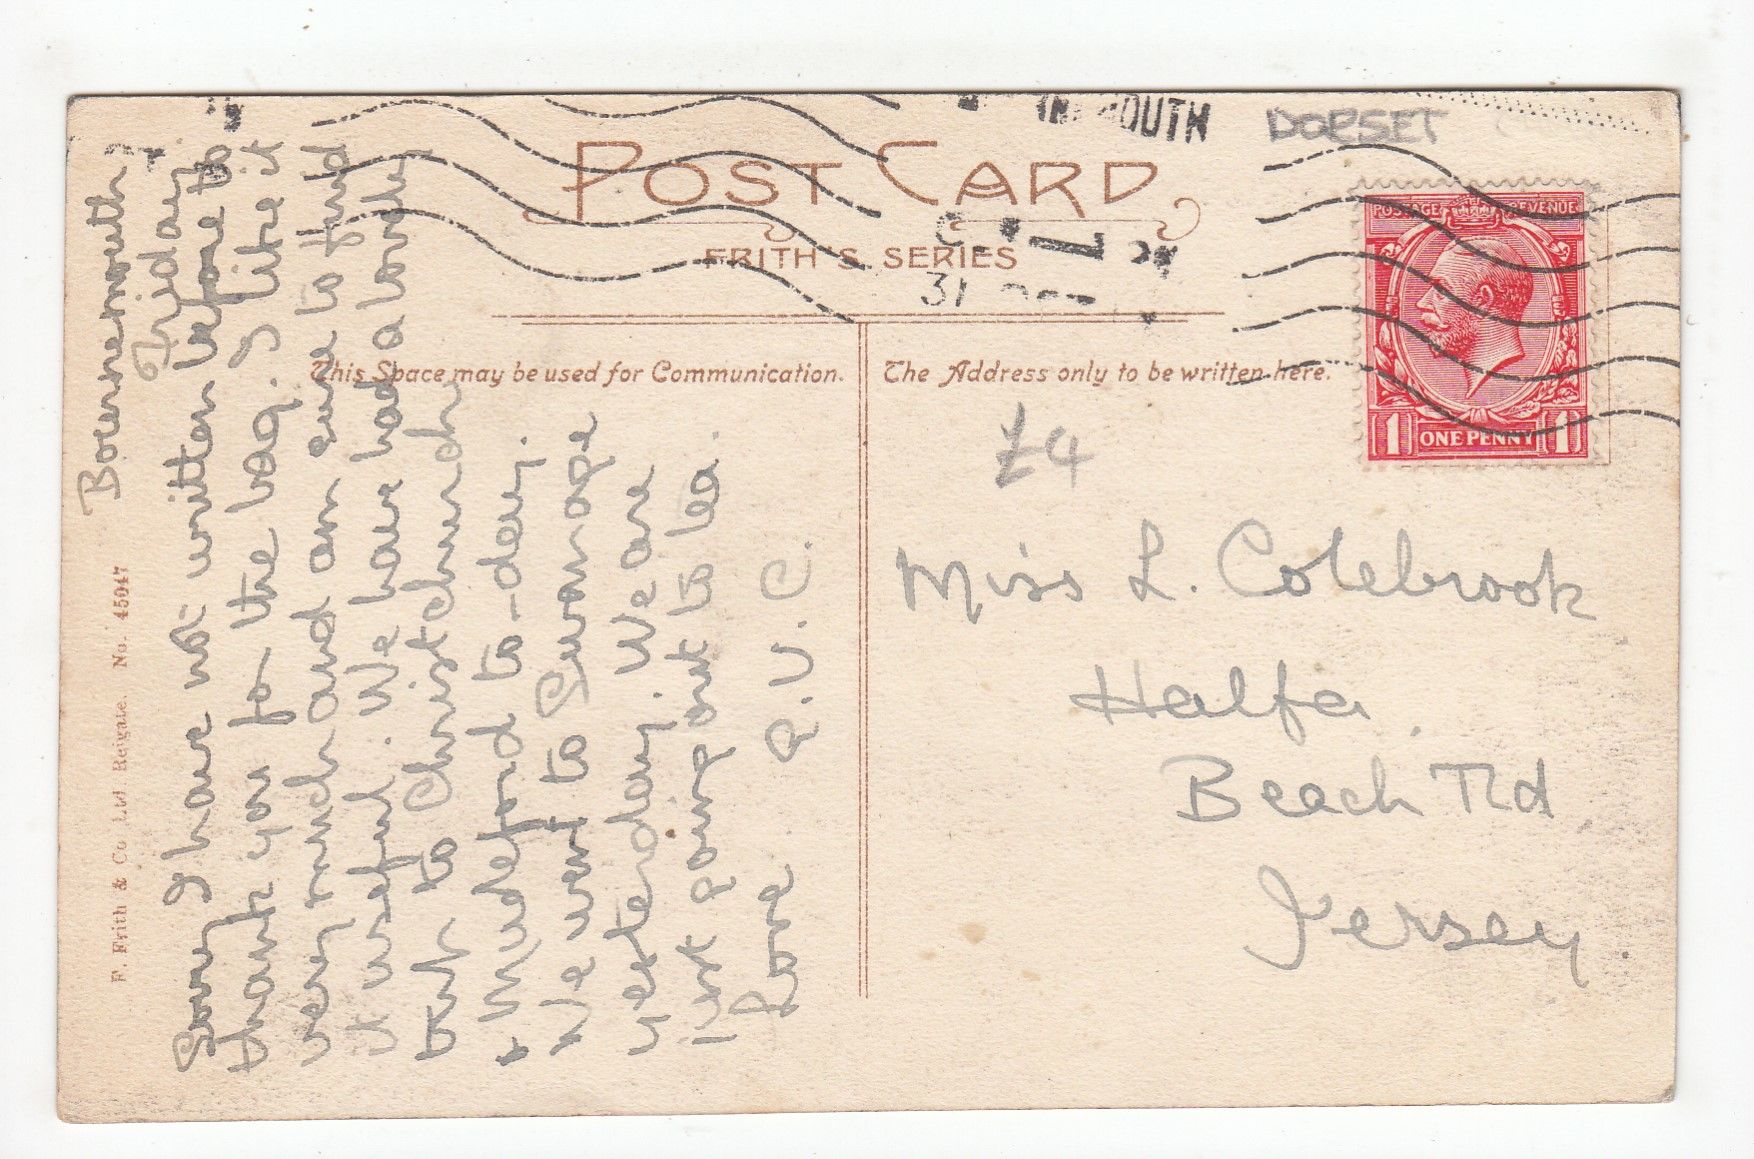 POST CARD
FRITH'S SERIES
This Space may be used for Communication.
The Address only to be written here.
DORSET
31
POSTAGE REVENUE
1 ONE PENNY 1
£4
Miss L. Colebrook
Halfa
Beach Rd
Jersey
F. Frith & Co Ltd Reigate. No. 45047
Bournemouth
Friday
Sorry I have not written before to
thank you for the bag. I like it
very much and am sure to find
it useful. We have had a lovely
bus to Christchurch
+ Mudeford to-day.
We went to Swanage
yesterday. We are
just going out to tea.
Love P.V.C.